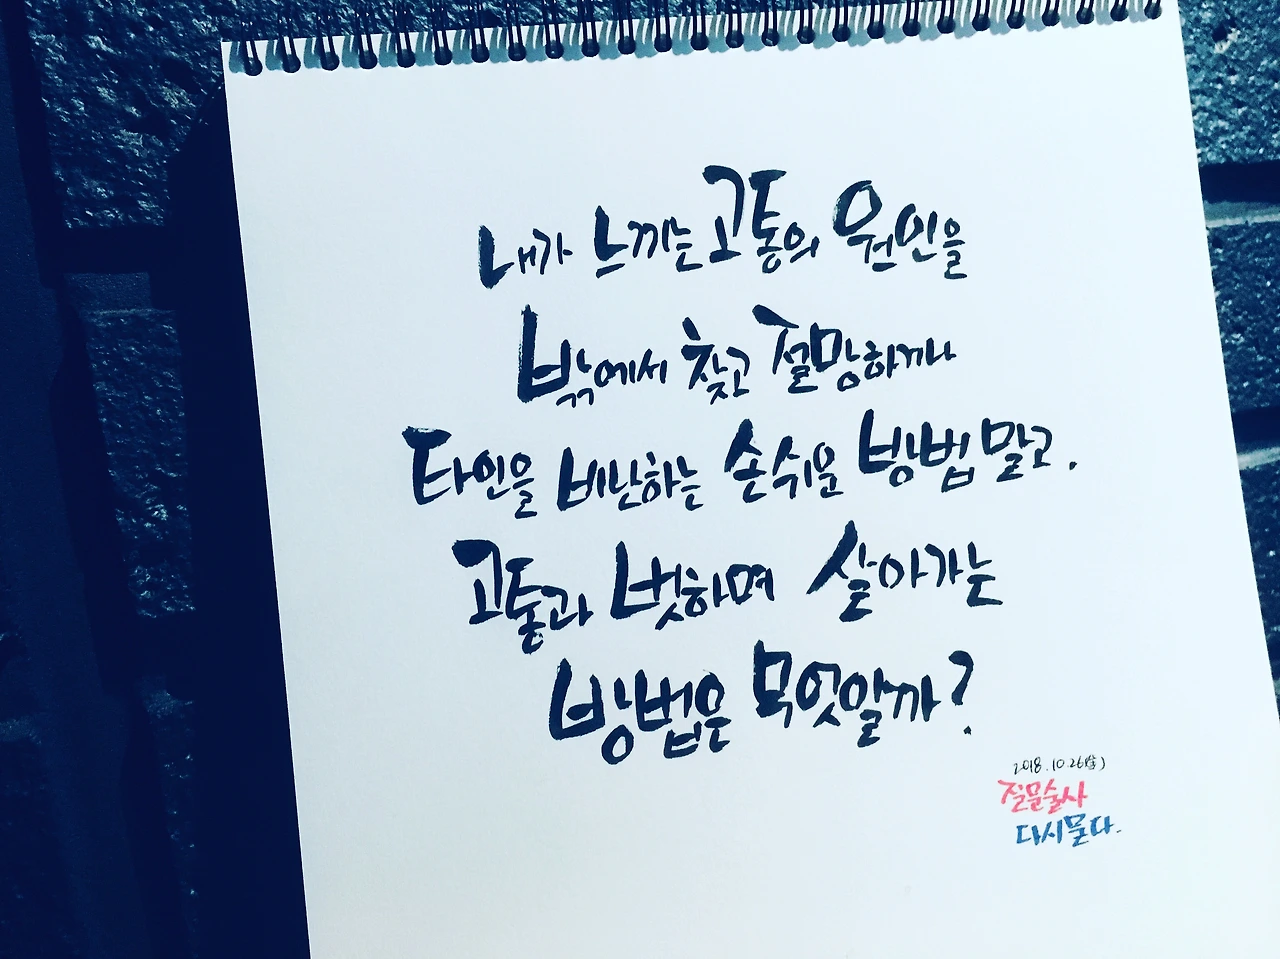 내가 느끼는 고통의 원인을
밖에서 찾고 절망하거나
타인을 비난하는 손쉬운 방법 말고.
고통과 벗하며 살아가는
방법은 무엇일까?
2018.10.26(金)
질문술사
다시묻다.